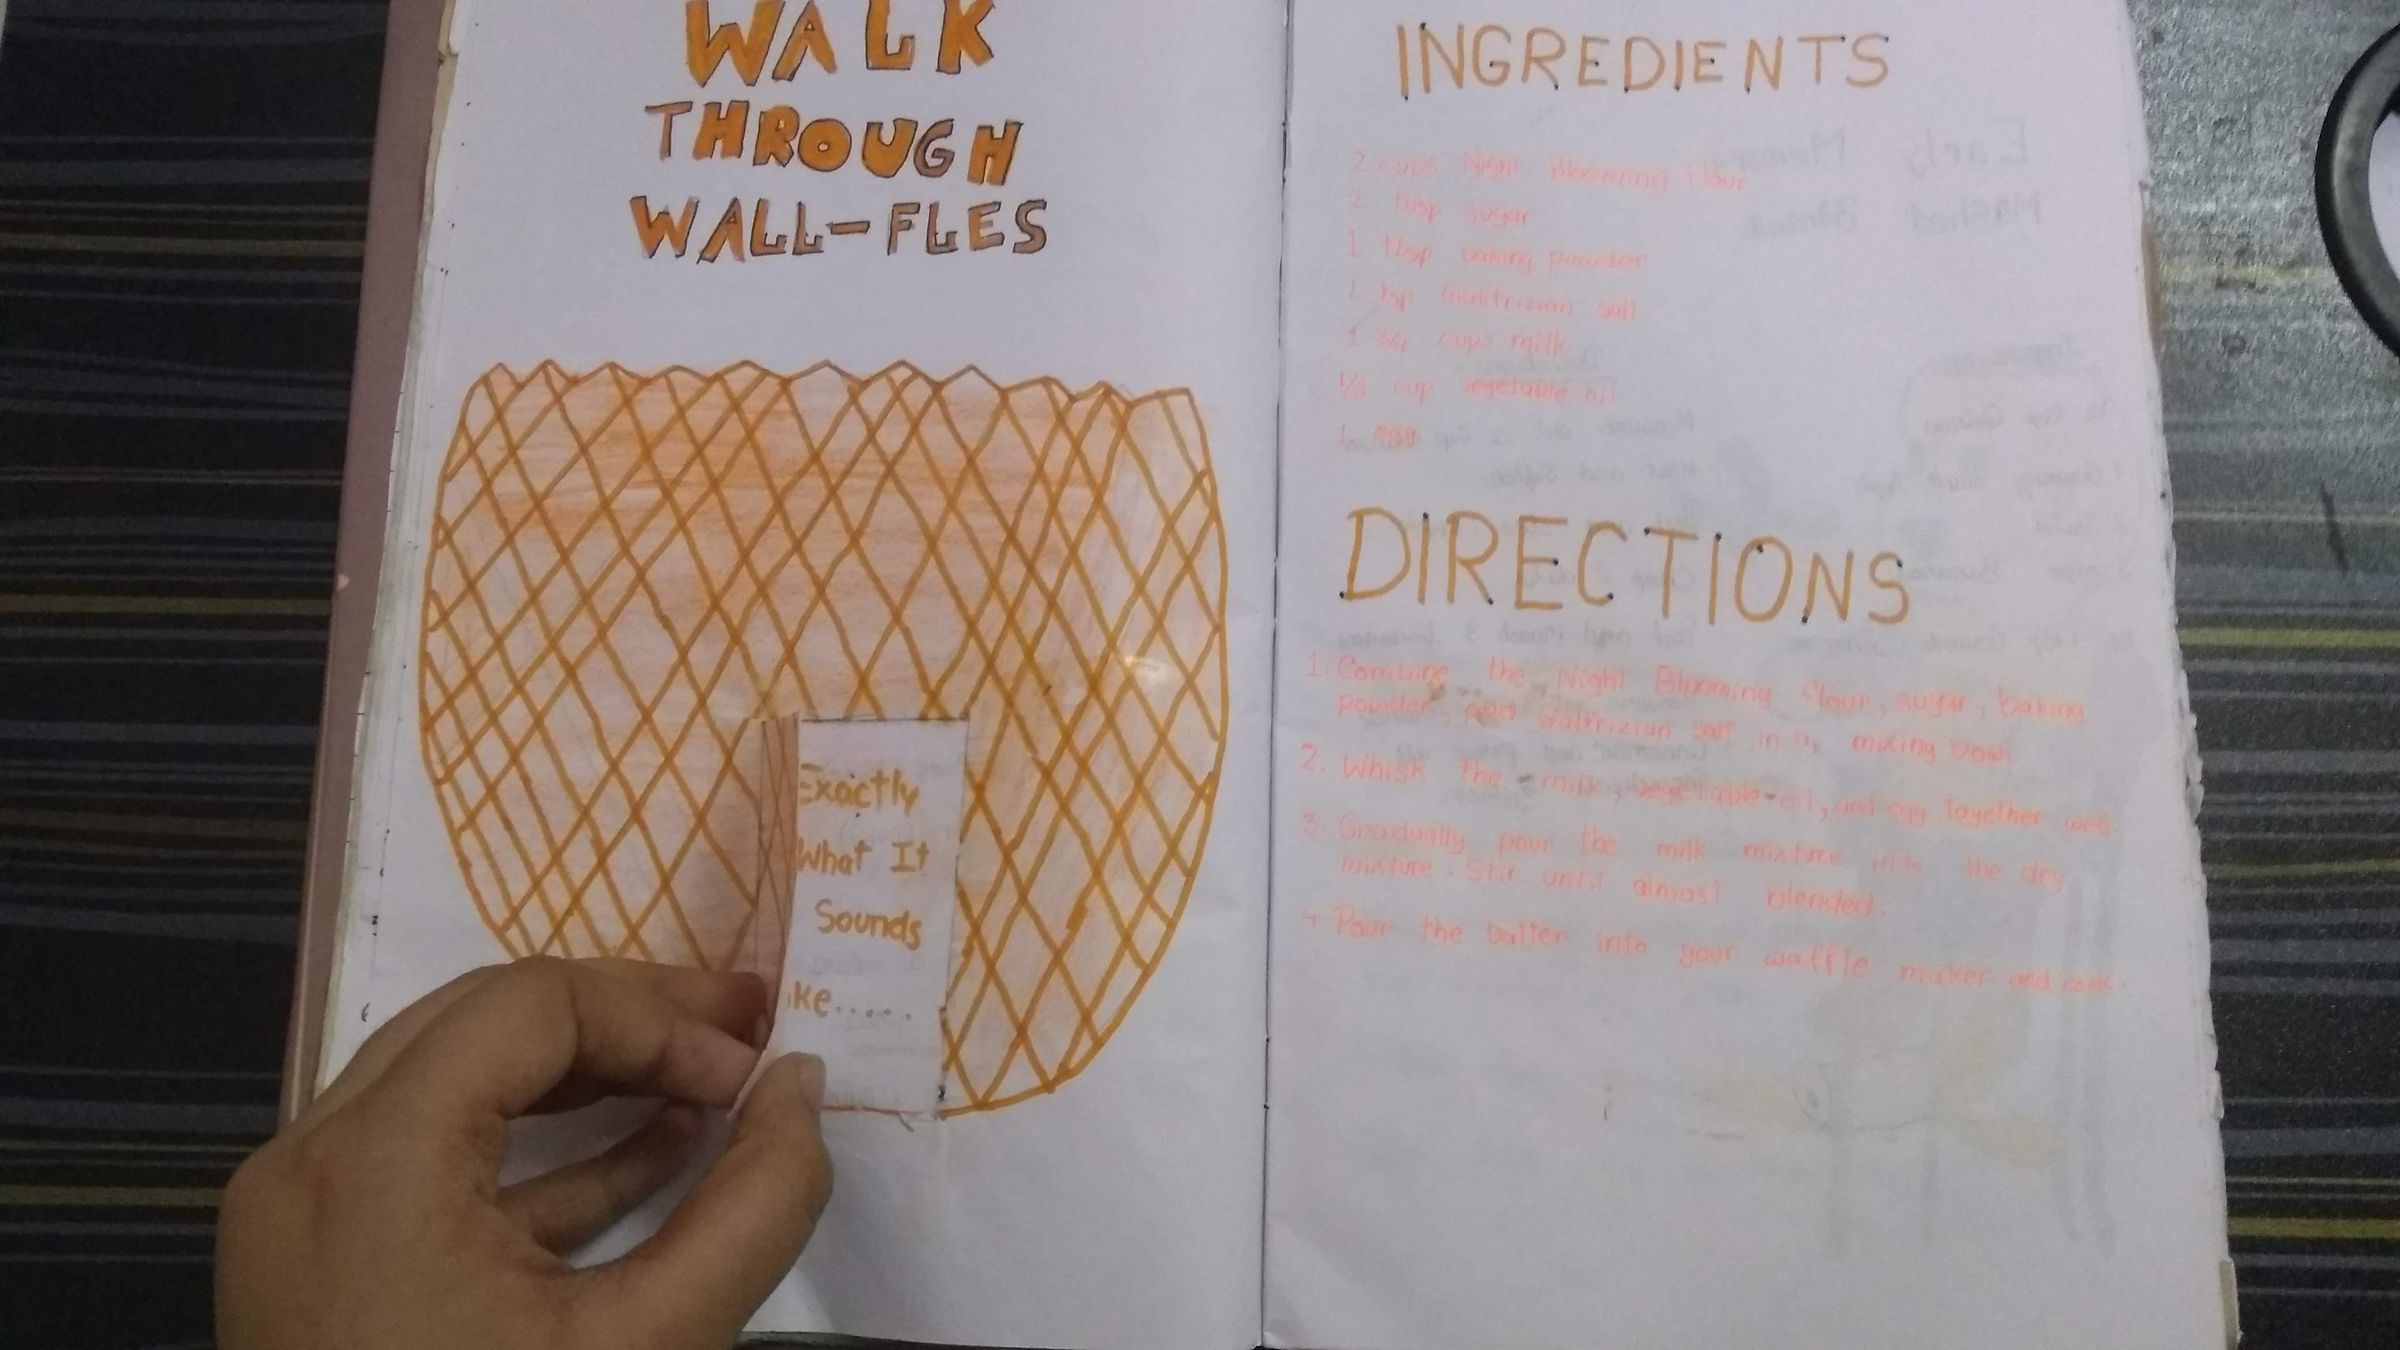 WALK
THROUGH
WALL-FLES
Exactly
What It
Sounds
ike......
INGREDIENTS
2 cups Night Blooming flour
2 tbsp sugar
1 tbsp baking powder
1 tsp Galtrizian salt
1 3/4 cups milk
1/3 cup vegetable oil
1 egg
DIRECTIONS
1. Combine the Night Blooming flour, sugar, baking
powder, and Galfrizian salt in a mixing bowl
2. Whisk the milk, vegetable oil, and egg together well.
3. Gradually pour the milk mixture into the dry
mixture. Stir until almost blended.
4 Pour the batter into your waffle maker and cook.